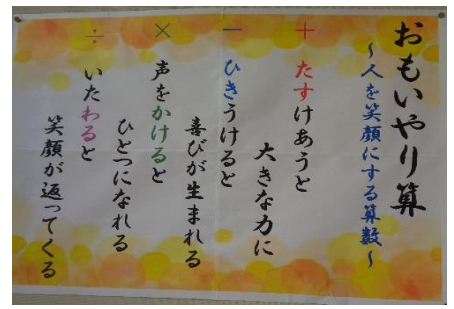 おもいやり算
～人を笑顔にする算数～
＋ たすけあうと
大きな力に
－ ひきうけると
喜びが生まれる
× 声をかけると
ひとつになれる
÷ いたわると
笑顔が返ってくる